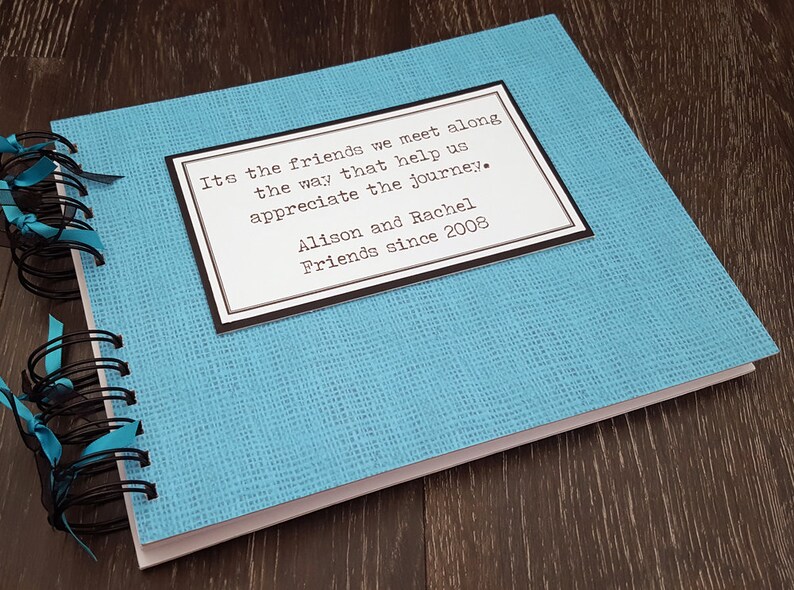 Its the friends we meet along
the way that help us
appreciate the journey.
Alison and Rachel
Friends since 2008